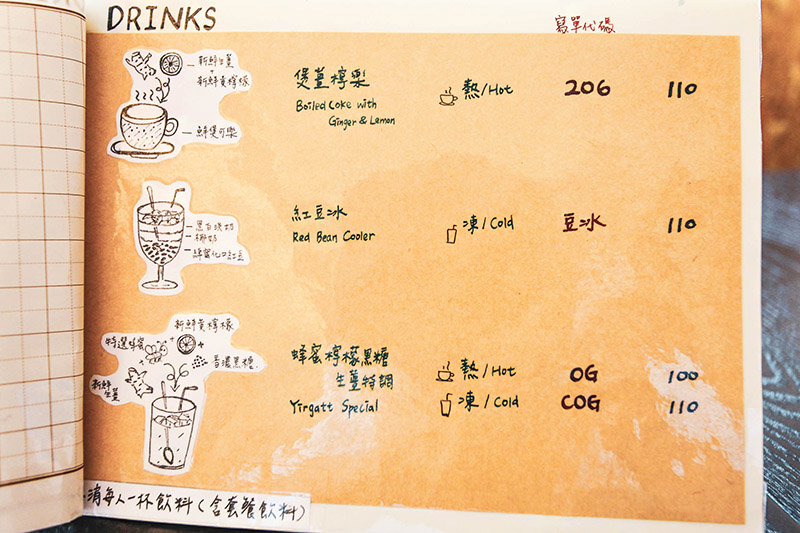 DRINKS
寫單代碼
新鮮生薑
+
新鮮黃檸檬
鮮煲可樂
煲薑檸樂
Boiled Coke with
Ginger & Lemon
熱/Hot
206
110
黑白淡奶
椰奶
綿蜜化口紅豆
紅豆冰
Red Bean Cooler
凍/Cold
豆冰
110
新鮮黃檸檬
特選蜂蜜
+
香濃黑糖
新鮮
生薑
蜂蜜檸檬黑糖
生薑特調
Yirgatt Special
熱/Hot
OG
100
凍/Cold
COG
110
消每人一杯飲料(含套餐飲料)